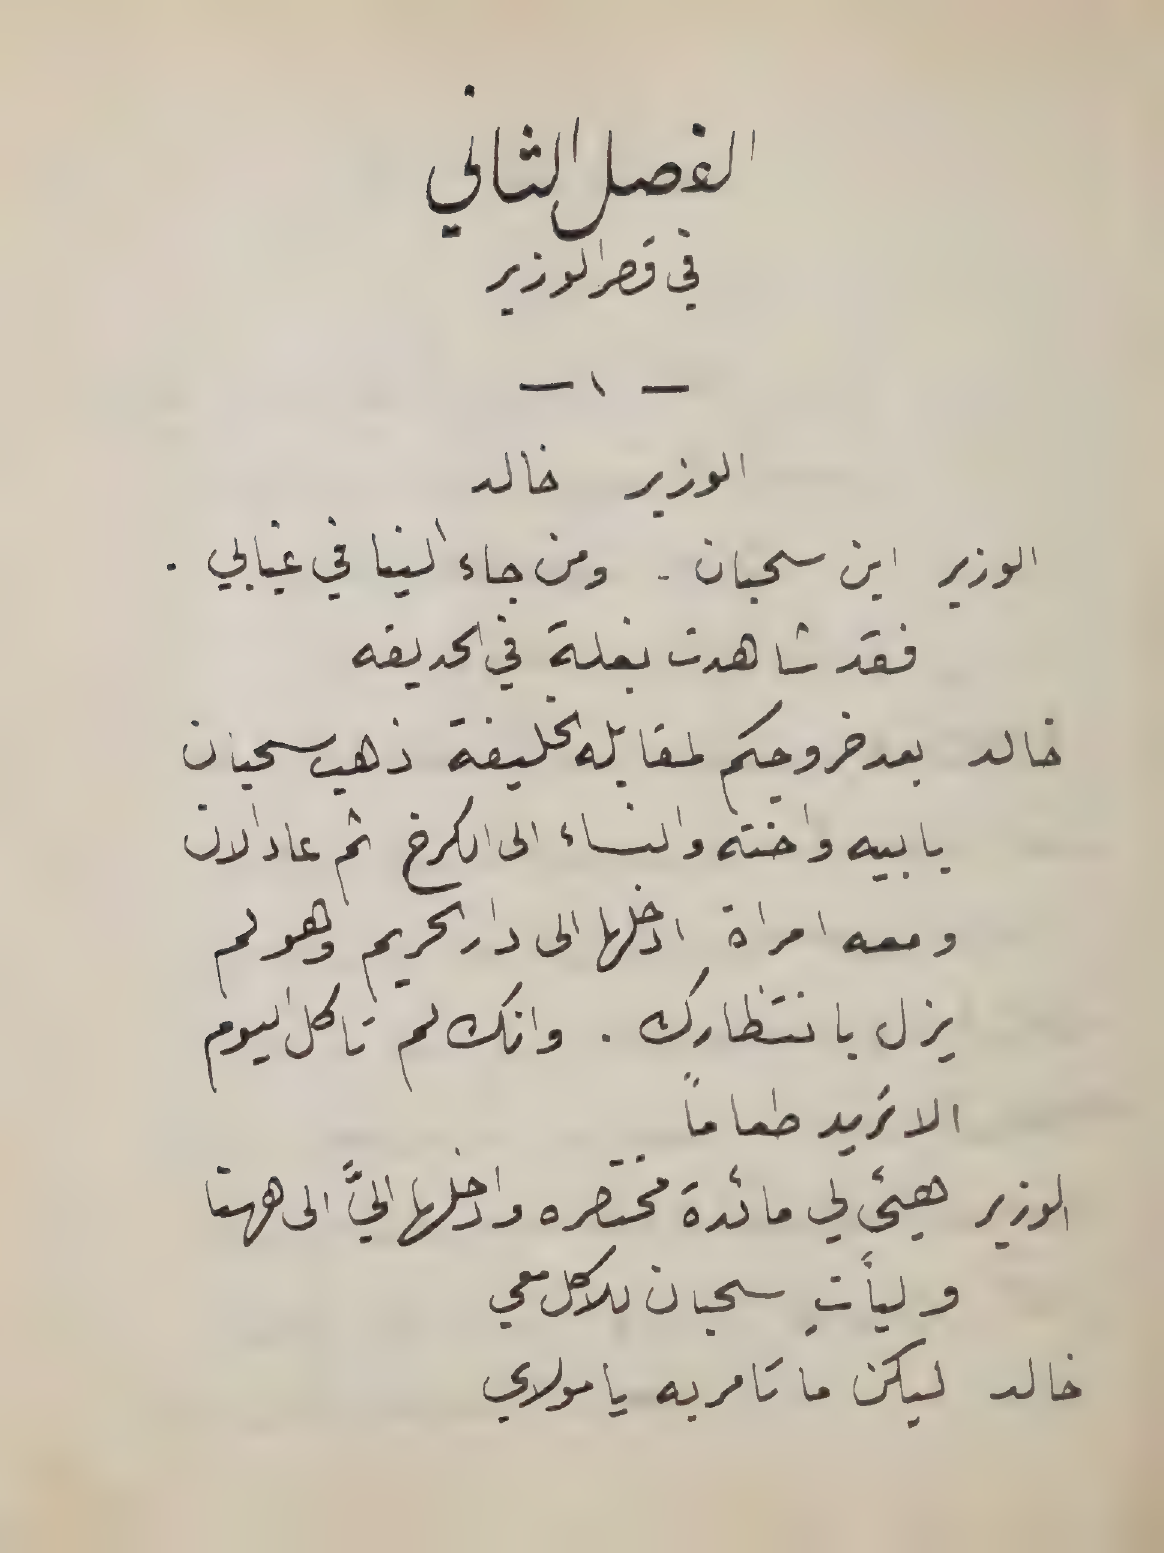 الفصل الثاني
في قصر الوزير
— ١ —
الوزير خالد
الوزير اين سحبان . ومن جاء الينا في غيابي .
فقد شاهدت بغلة في الحديقه
خالد بعد خروجكم لمقابلة الخليفة ذهب سحبان
بابيه واخته والنساء الى الكرخ ثم عاد الان
ومعه امراة ادخلها الى دار الحريم وهو لم
يزل بانتظارك . وانك لم تاكل اليوم
الا تريد طعاماً
الوزير هيئي لي مائدة مختصره وادخلها اليَّ الى ههنا
وليأتِ سحبان للاكل معي
خالد ليكن ما تامر به يا مولاي